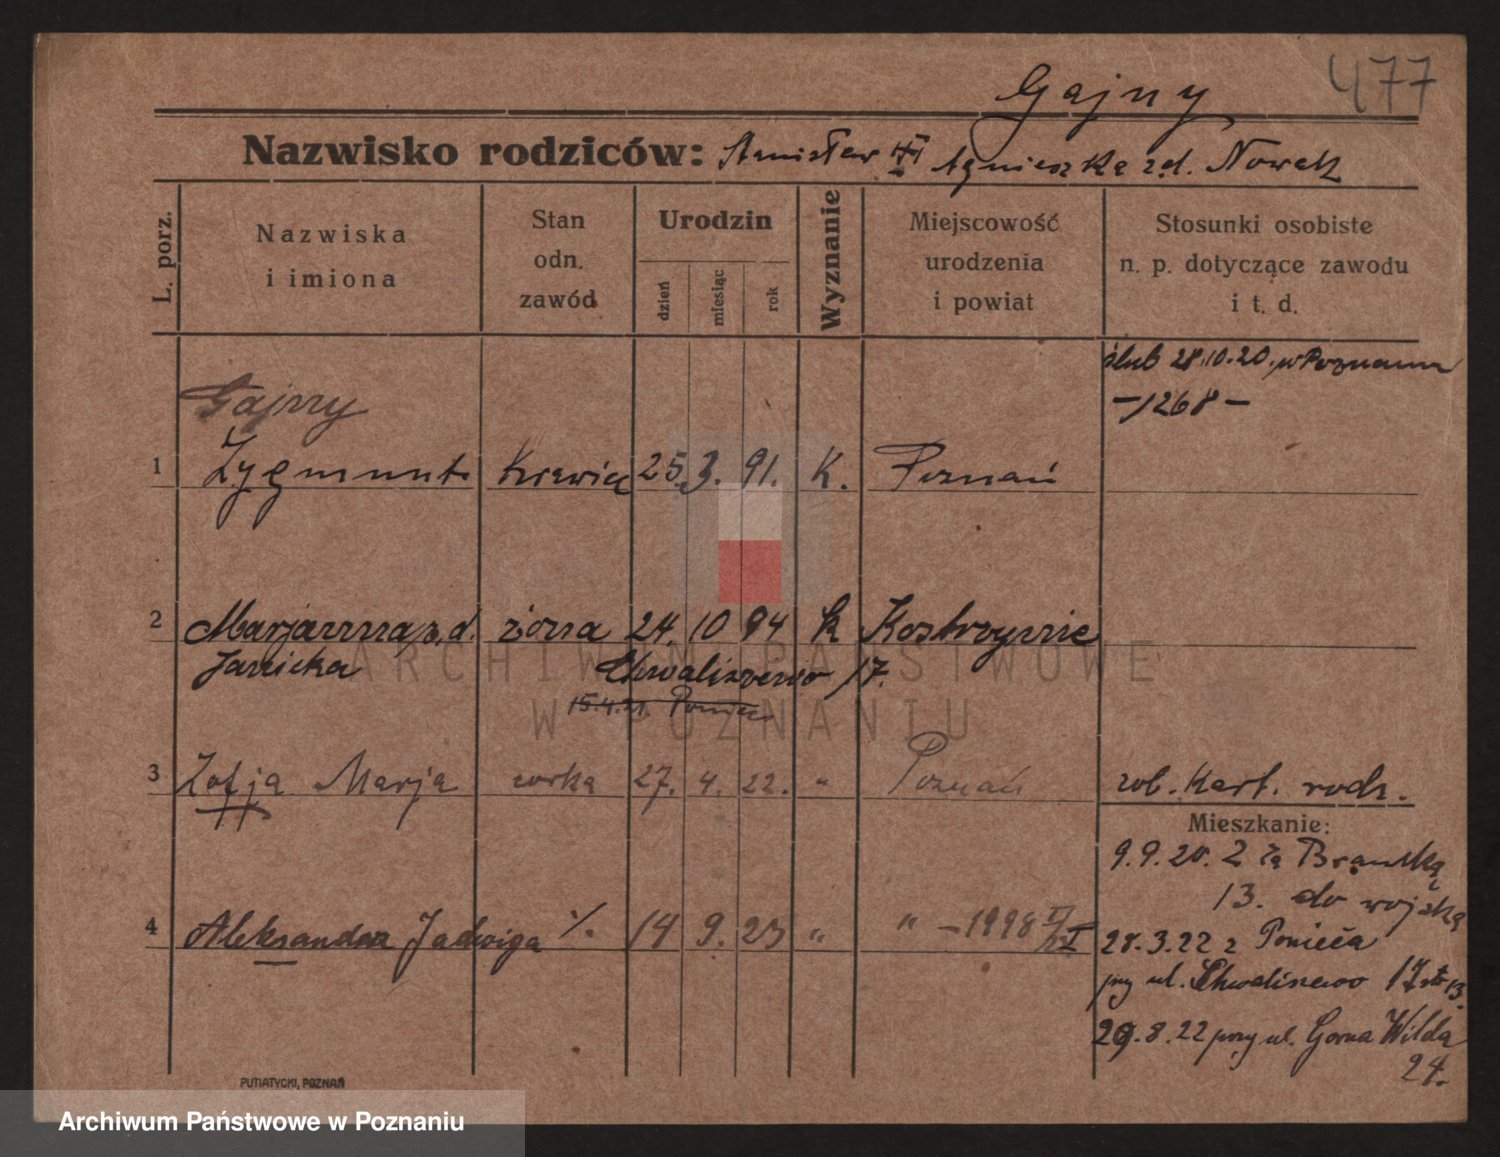 477
Gajny
Nazwisko rodziców: Stanisław Agnieszka z d. Nowak
L. porz.
Nazwiska i imiona
Stan odn. zawód
Urodzin
dzień miesiąc rok
Wyznanie
Miejscowość urodzenia i powiat
Stosunki osobiste n. p. dotyczące zawodu i t. d.
ślub 28.10.20. w Poznaniu
-1268-
Gajny
1 Zygmunt krawiec 25. 3. 91. K. Poznań
2 Marjanna z. d. żona 24. 10 94 k Kostrzynie
Janicka Chwaliszewo 17.
15.4.21. Poniec
3 Zofja Marja córka 27. 4. 22. " Poznań
zob. kart. rodz.
Mieszkanie:
9.9.20. z
13. do wojska
4 Aleksandra Jadwiga 14 9. 23 " " - 1998
28.3.22 z Ponieca
przy ul. Chwaliszewo 17
29.8.22 przy ul. Górna Wilda
24.
PUTIATYCKI, POZNAŃ
ARCHIWUM PAŃSTWOWE
W POZNANIU
Archiwum Państwowe w Poznaniu